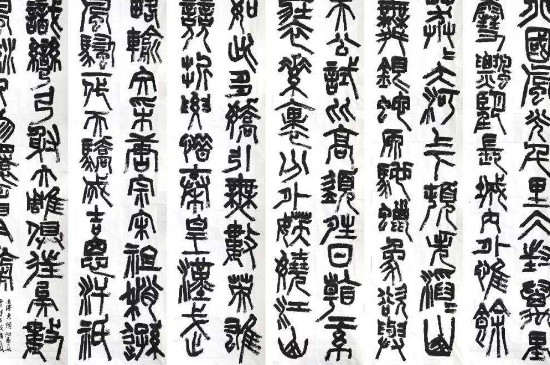 北國風光千里冰封萬里
雪飄望長城內外惟餘
莽〻大河上下頓失滔〻山
舞銀蛇原馳蠟象欲與
天公試比高須晴日看紅
裝素裹分外妖嬈江山
如此多嬌引無數英雄
競折腰惜秦皇漢武
略輸文采唐宗宋祖稍遜
風騷一代天驕成吉思汗祇
識彎弓射大雕俱往矣數
風流人物還看今朝